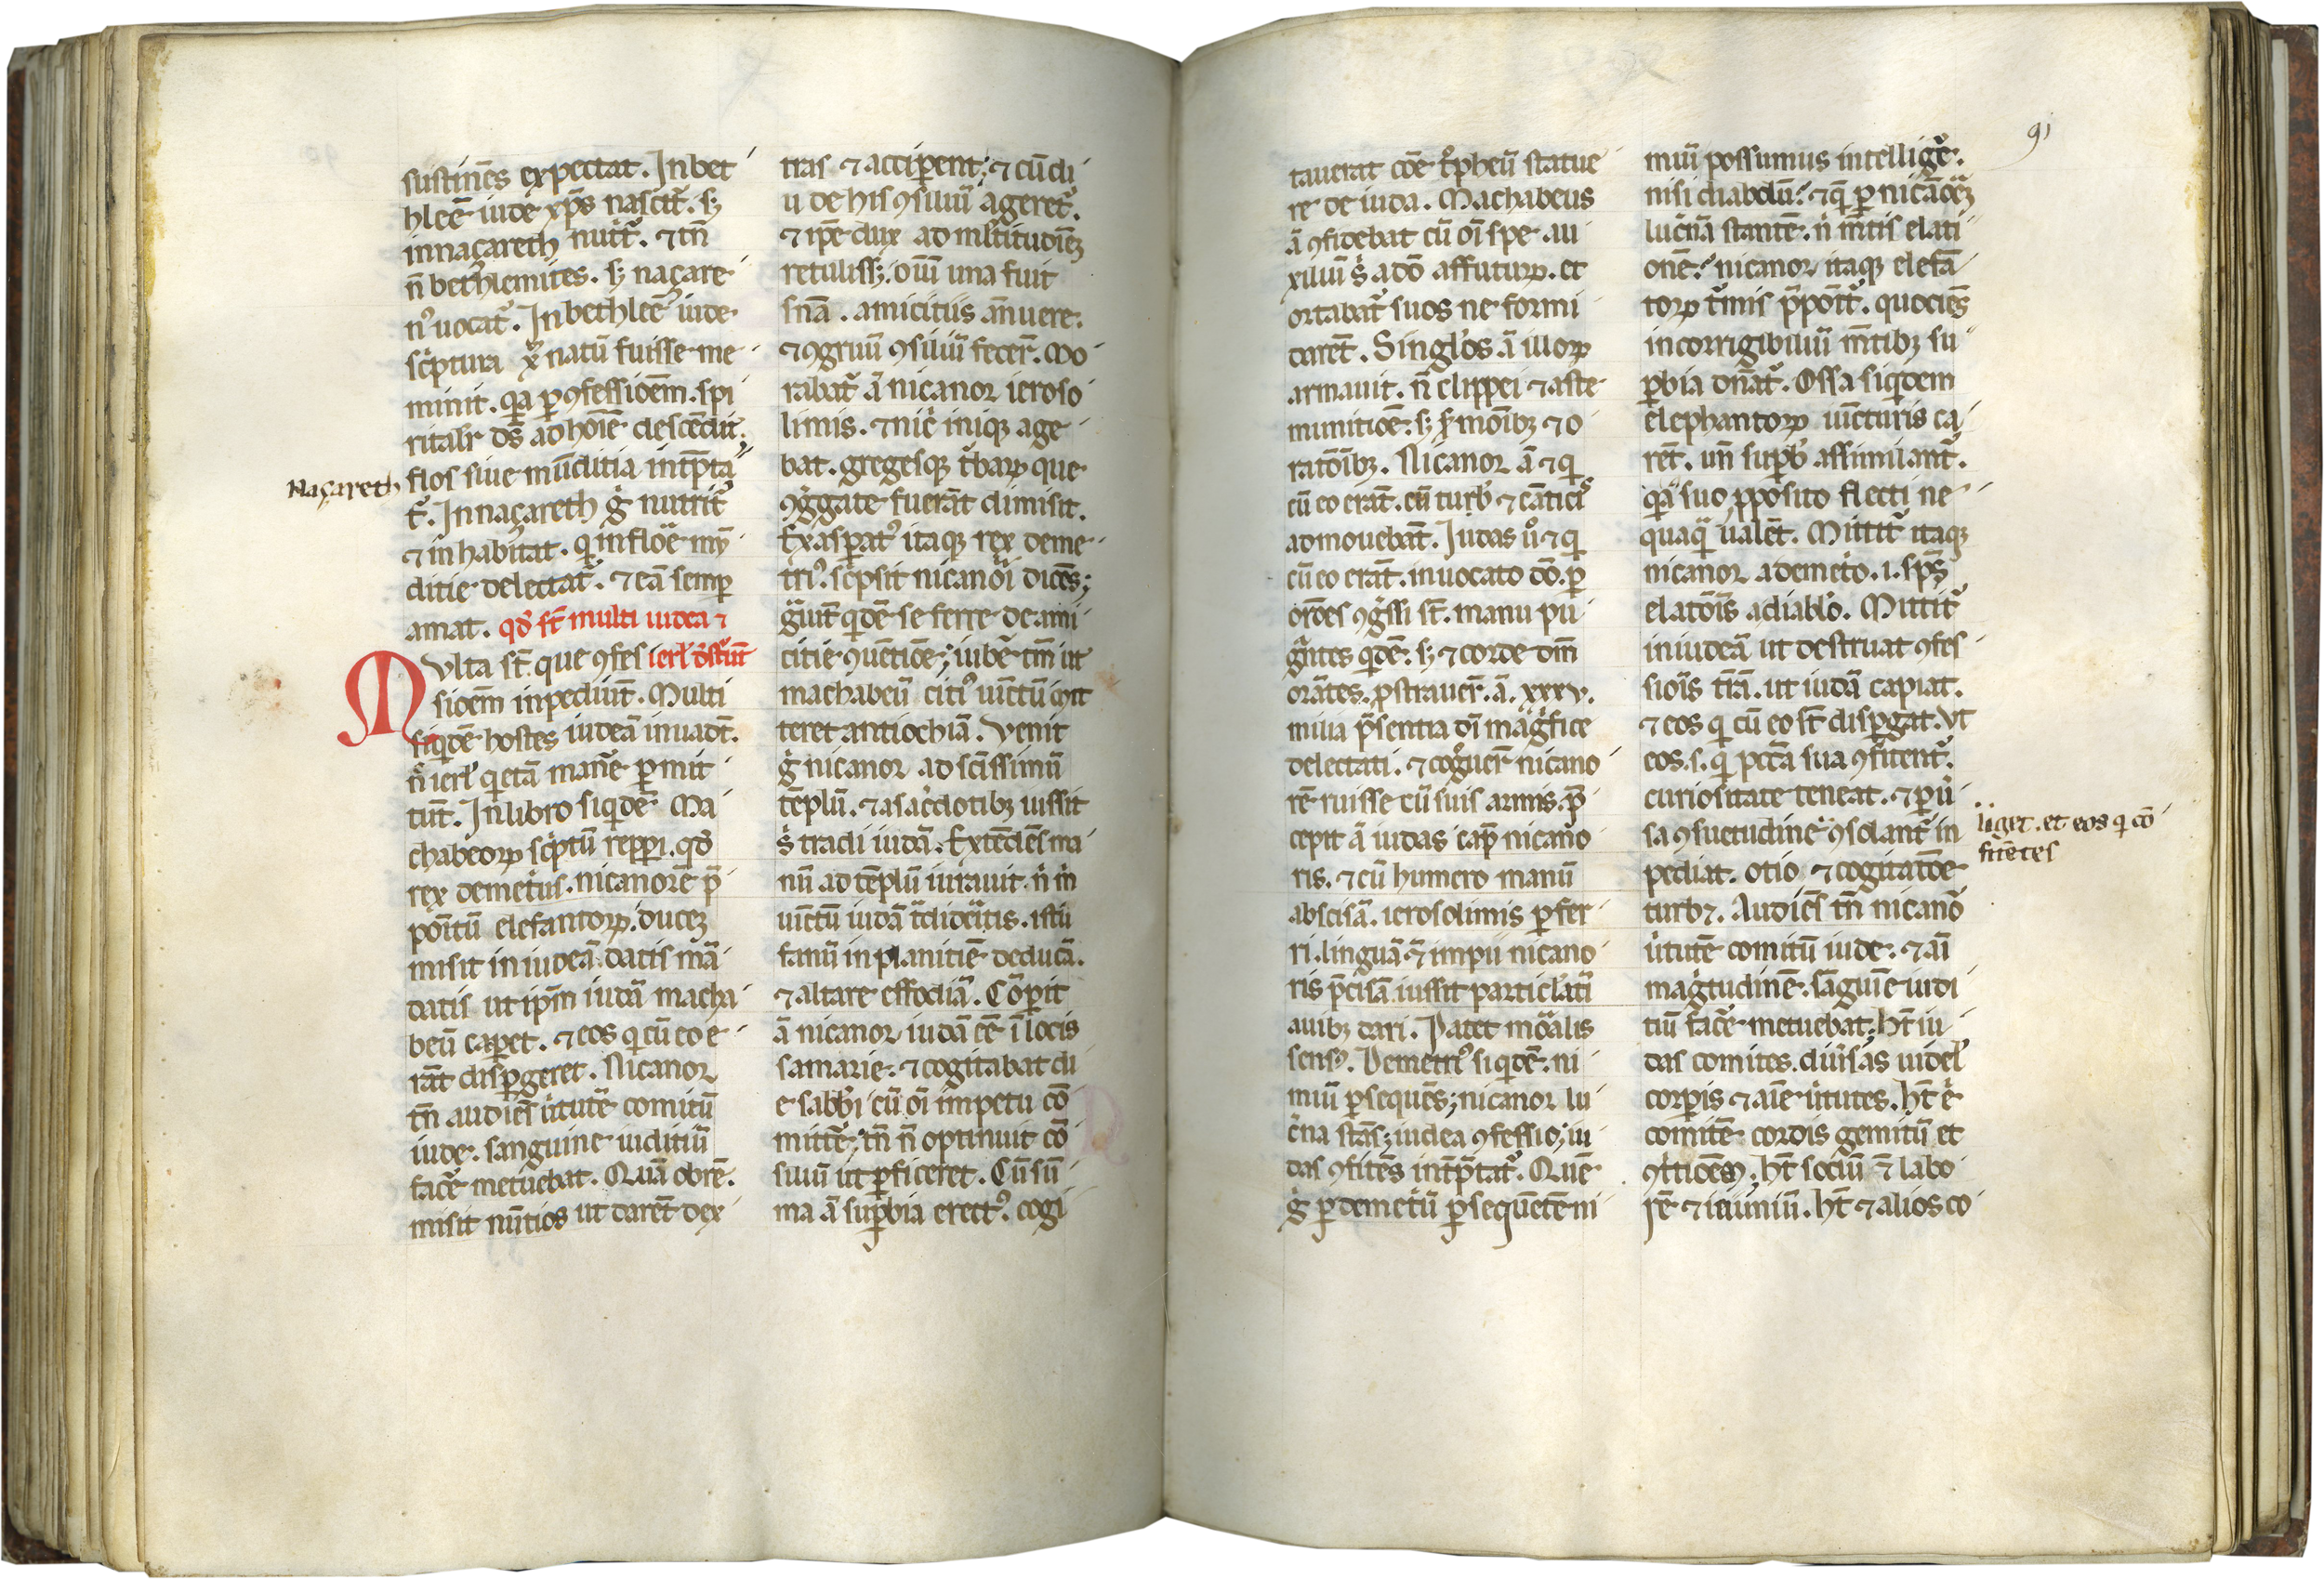 sustinēs expectat. In bet
hleē iude xp̄s nascit᷑. sꝫ
in naçareth nutit᷑. ⁊ tn̄
n̄ bethlemites. sꝫ naçare
nꝰ uocat᷑. In bethleē iude
sc͛ptura xp̄ natū fuisse me
minit. qa p ꝯfessioēm. spi
ritalr ds̄ ad hoīe descēdit.
Naçareth
flos siue mūditia int̄pta
t᷑. In naçareth g̊ nutrit᷑
⁊ inhabitat. q in floe mū
ditie delectat᷑. ⁊ eā semp
amat. qd̓ st̄ multi iudea ⁊
ierl̓m dest͛uūt
Multa st̄ que ꝯfes
sioēm inpediūt. Multi
siqdē hostes iudeā inuadt̄.
n̊ ierl̓ qetā manē pmit
tūt. In libro siqdē Ma
chabeoꝝ sc͛ptū reppi. qd̓
rex demetͥus. nicanorē p̄
poītū elefantoꝝ. ducēꝫ
misit in iudeā. datis mā
datis ut ipm̄ iudā macha
beū capet. ⁊ eos q cū eo e
rāt dispgeret. Nicanor
tn̄ audiēs ůtutē comitū
iude. sanguine iuditiū
facē metuebat. Quā obrē.
misit nūtios ut darēt dex
tras ⁊ acciperent; ⁊ cū di
u de his ꝯsiliū ageret᷑.
⁊ ipē dux ad ml̓titudinēꝫ
retulissꝫ. oiū una fuit
snīa. amicitiis ānuere.
⁊ ꝯgruū ꝯsiliū fecer̄. Mo
rabat᷑ ā nicanor ieroso
limis. ⁊ nic̓ iniqꝫ age
bat. gregesqꝫ t᷑baꝝ que
ꝯg̊gate fuerāt dimisit.
Exaspatꝰ itaqꝫ rex deme
triꝰ. sc͛psit nicanoͥ dicēs;
g̊uit̄ qdē se ferre de ami
citie ꝯuētiōe; iubē tm̄ ut
machabeū citiꝰ uīctū mit
teret antiochiā. Venit
g̊ nicanor ad scīssimū
tēplū. ⁊ a sac̓dotibꝫ iussit
s̊ tradi iudā. Extēdēs ma
nū ad tēplū iurauit. n̊ m̊
uīctū iudā t͛dideritis. istū
fanū in planitiē deducā.
⁊ altare effodiā. Cōperit
ā nicanor iudā eē ī locis
samarie. ⁊ cogitabat di
e sabb̓i cū oī impetu cō
mittē; tn̄ n̄ optinuit cō
siliū ut pficeret. Cū sū
ma ā supbia erectꝰ. cogi
tauerat cōe t͛pheū statue
re de iuda. Machabeus
ā ꝯfidebat cū oī spe au
xiliū s̊ a dō affuturū. et
ortabat᷑ suos ne formi
darēt. Singl̓os ā illoꝝ
armauit. n̄ clippei ⁊ aste
munitiōe. sꝫ s̓moībꝫ ⁊ o
ratōibꝫ. Nicanor ā ⁊ q
cū eo erāt. cū turb̓ ⁊ cātic̓
admouebāt. Iudas ů ⁊ q
cū eo erāt. inuocato dō. p
ordēs ꝯg̊ssi st̄. manu pu
gnātes qdē. sꝫ ⁊ corde dm̄
orātes. pstrauer̄. ā. xxxv.
milia p̄sentia dī mag̊fice
delectati. ⁊ cog̊uer̄ nicano
rē ruisse cū suis armis. p̄
cepit ā iudas cap̄ nicano
ris. ⁊ cū humero manū
abscisā. ierosolimis pfer
ri. linguā ⁊ impii nicano
ris p̄cisā iussit particl̓atī
auibꝫ dari. Patet moralis
sensꝰ. Demetͥꝰ siqdē. ni
miū psequēs; nicanor lu
c̓na stās; iudea ꝯfessio; iu
das ꝯfitēs int̄pretat᷑. Quē
g̊ p demetͥū psequētē ni
91
miū possumus intelligē.
nisi diabolū? ⁊ q p nicāorēꝫ
luc̓nā stantē. n̊ mētis elati
onē? nicanor itaqꝫ elefā
toꝝ t᷑mis p̄poīt᷑. quociēs
incorrigibiliū mētibꝫ su
pbia dn̄at᷑. Ossa siqdem
elephantoꝝ uīcturis ca
rēt. un̄ supb̓ assimilant᷑.
qa suo pposito flecti ne
quaq̄ ualēt. Mittit᷑ itaqꝫ
nicanor a demetͥo. i. spūs
elatōis a diabl̓o. Mittit᷑
in iudeā ut destruat ꝯfes
siois t̄rā. ut iudā capiat.
⁊ eos q cū eo st̄ dispgat. Vt
eos. s. q pctā sua ꝯfitent᷑.
curiositate teneat. ⁊ pů
sa ꝯsuetudine ꝯsolant᷑ in
liget. et eos q cō
fitētes
pediat. otio ⁊ cogitatōe
turbꝫ. Audiēs tn̄ nicanor
ůtutē comitū iude. ⁊ aī
mag̊tudinē. sāguinē iudi
tiū facē metuebat; Ht̄ iu
das comites. diůsas uidel̓
corpis ⁊ aīe ůtutes. Ht̄ ē
comitē cordis gemitū et
ꝯt͛tiōēꝫ. Ht̄ sociū ⁊ labo
rē ⁊ ieiuniū. Ht̄ ⁊ alios co